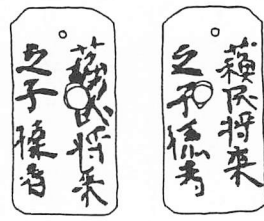 蘓民将来
之子孫者
蘓民将来
之子孫者